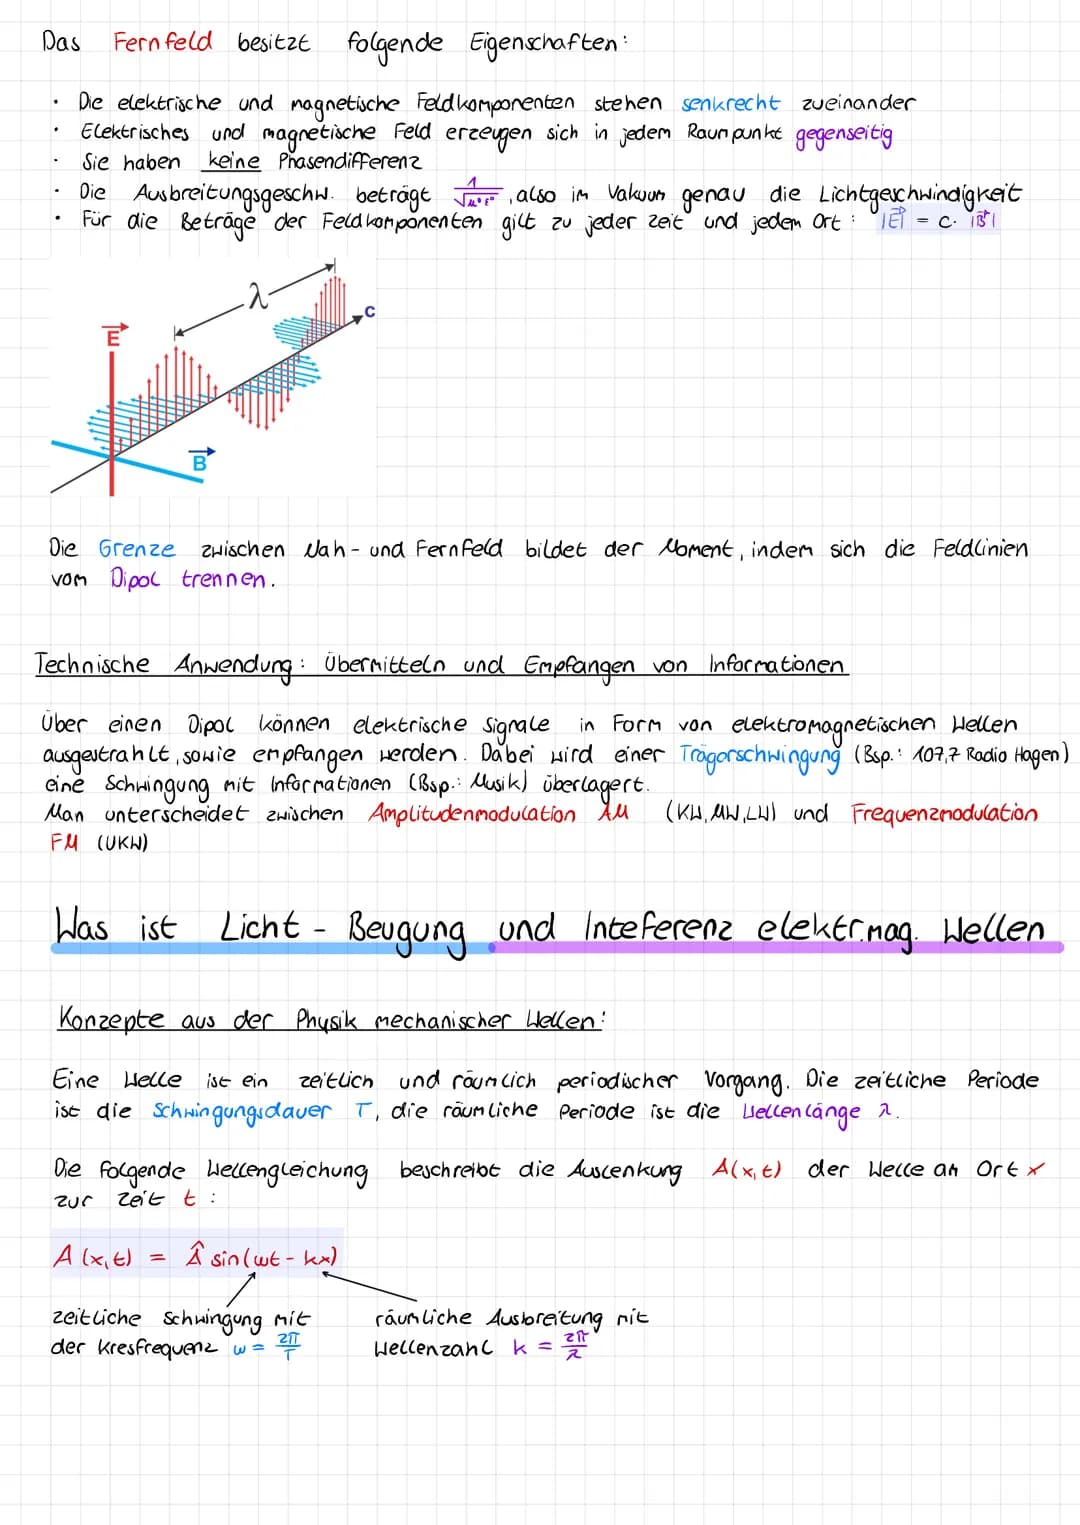 Das Fernfeld besitzt folgende Eigenschaften:
· Die elektrische und magnetische Feldkomponenten stehen senkrecht zueinander
· Elektrisches und magnetische Feld erzeugen sich in jedem Raumpunkt gegenseitig
· Sie haben keine Phasendifferenz
· Die Ausbreitungsgeschw. beträgt 1/√μ₀ε₀, also im Vakuum genau die Lichtgeschwindigkeit
· Für die Beträge der Feldkomponenten gilt zu jeder Zeit und jedem Ort: |E⃗| = c· |B⃗|
λ
E⃗
c
B⃗
Die Grenze zwischen Nah- und Fernfeld bildet der Moment, indem sich die Feldlinien
vom Dipol trennen.
Technische Anwendung: Übermitteln und Empfangen von Informationen
Über einen Dipol können elektrische Signale in Form von elektromagnetischen Wellen
ausgestrahlt, sowie empfangen werden. Dabei wird einer Trägorschwingung (Bsp.: 107,7 Radio Hagen)
eine Schwingung mit Informationen (Bsp.: Musik) überlagert.
Man unterscheidet zwischen Amplitudenmodulation AM (KW, MW, LW) und Frequenzmodulation
FM (UKW)
Was ist Licht - Beugung und Inteferenz elektr.mag. Wellen
Konzepte aus der Physik mechanischer Wellen:
Eine Welle ist ein zeitlich und räumlich periodischer Vorgang. Die zeitliche Periode
ist die Schwingungsdauer T, die räumliche Periode ist die Wellenlänge λ.
Die folgende Wellengleichung beschreibt die Auslenkung A(x,t) der Welle am Ort x
zur Zeit t:
A(x,t) = Â sin(ωt - kx)
zeitliche Schwingung mit räumliche Ausbreitung mit
der Kresfrequenz ω = 2π/T Wellenzahl k = 2π/λ